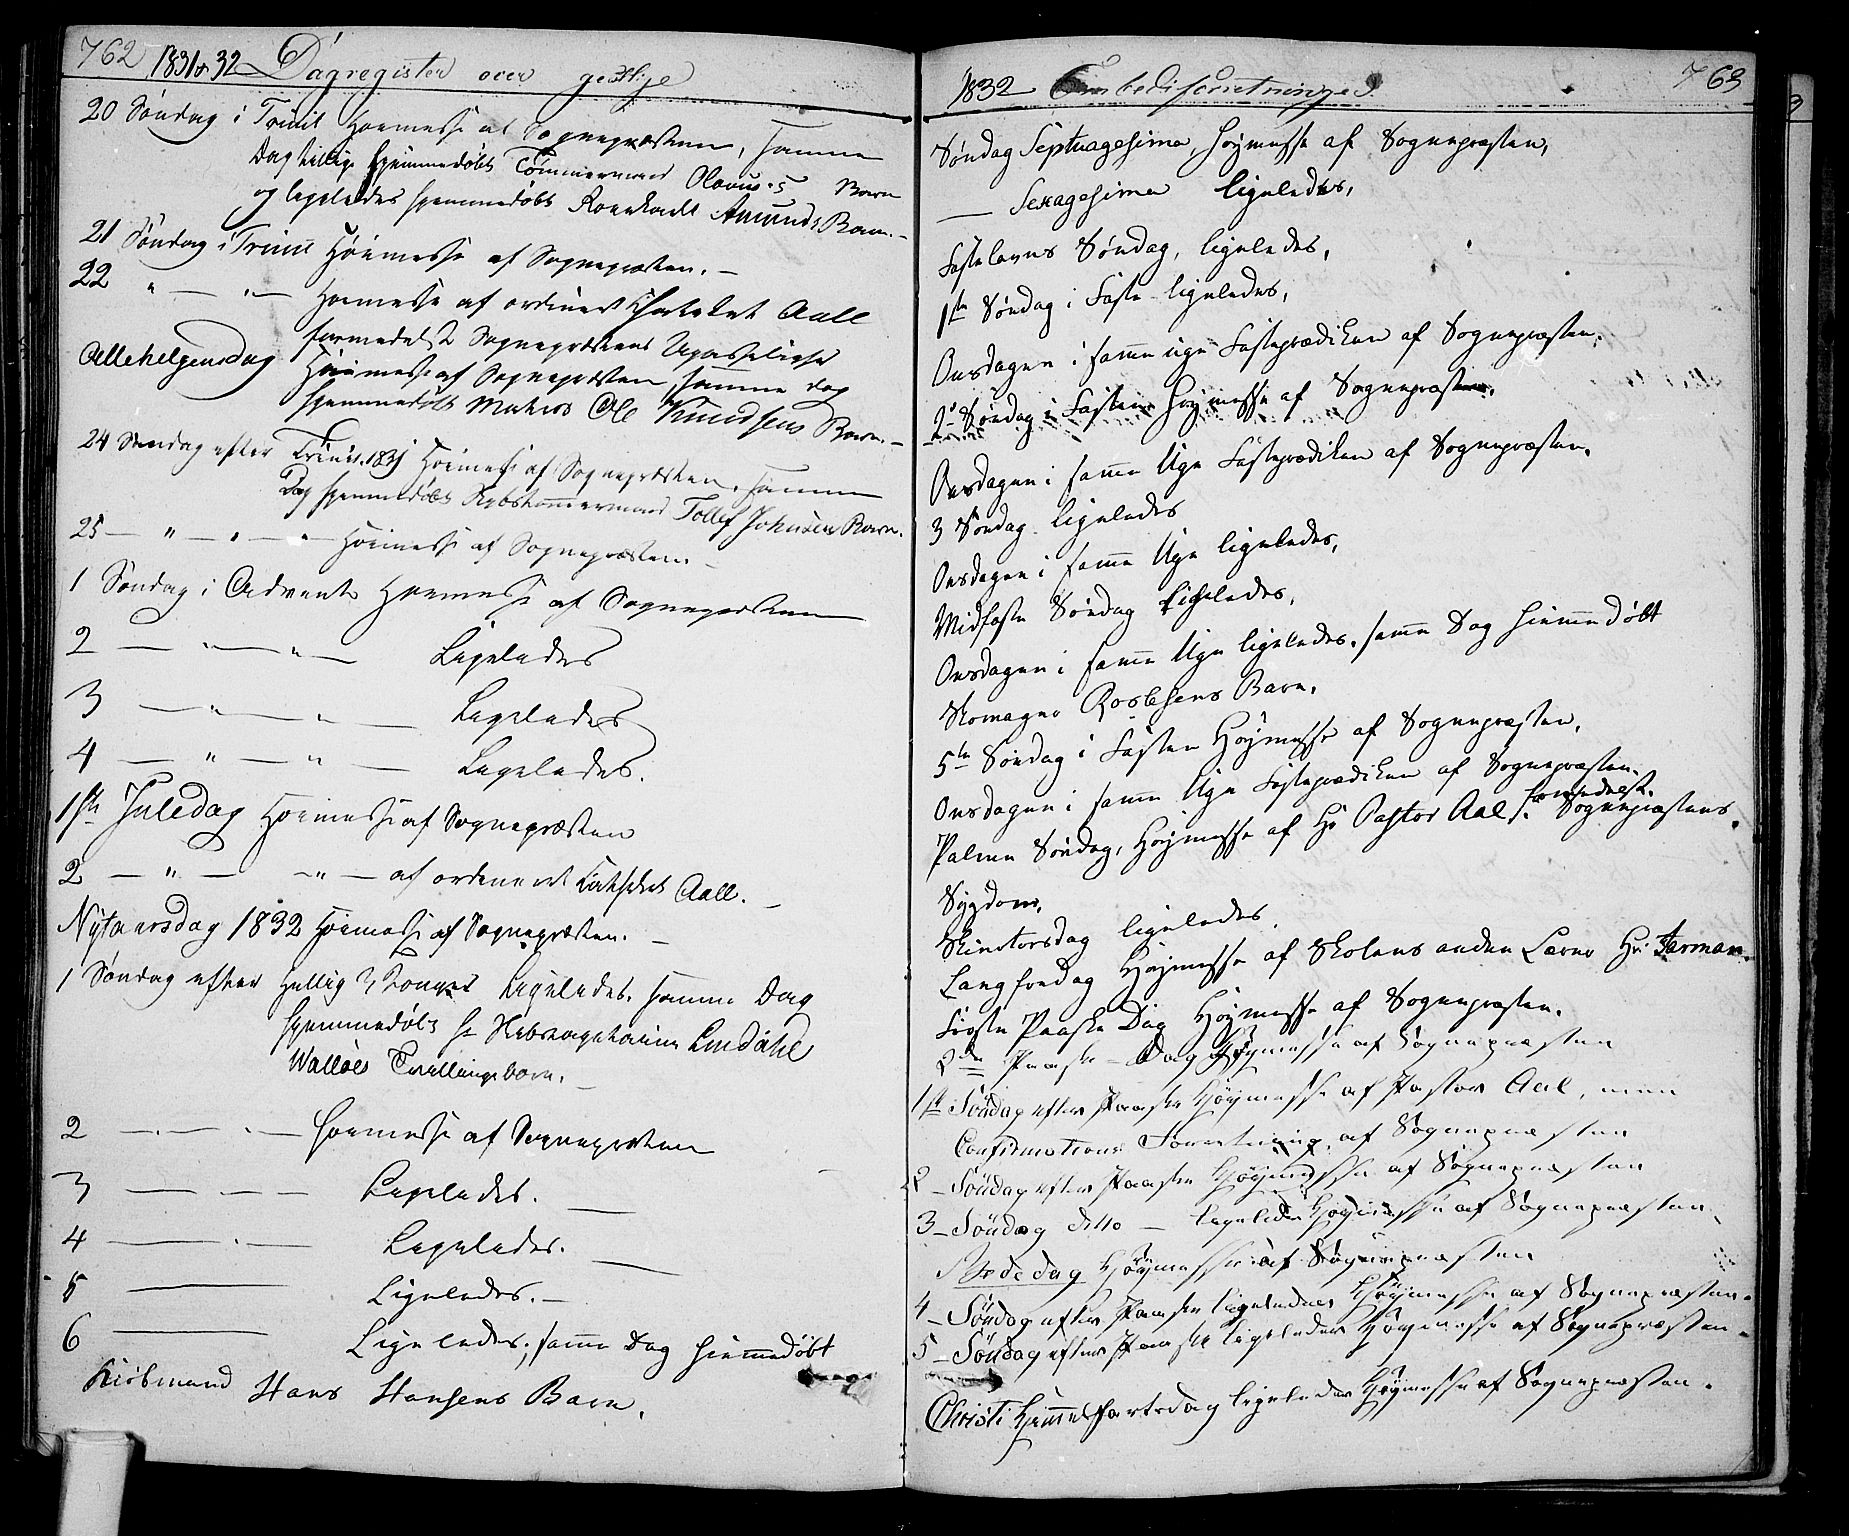 762 1831 & 32 Dagregister over gestlige
20 Søndag i Trinit Høimesse af Sognepræsten, samme
Dag tillige hjemmedøbt Tømmermand Olavus Barn
og ligeledes hjemmedøbt Amunds Barn.
21 Søndag i Trinit Høimesse af Sognepræsten. —
22 " — " — Høimesse af ordineret Chatechet Aall
formedelst Sognepræstens Upasselighed
Allehelgensdag Høimesse af Sognepræsten, samme dag
hjemmedøbt Ole Knudsens Barn. —
24 Søndag efter Trinit. 1831 Høimesse af Sognepræsten, samme
Dag hjemmedøbt Tollef Johnsen Barn.
25 — " — " — " — Høimesse af Sognepræsten. —
1 Søndag i Advent Høimesse af Sognepræsten
2 — " — " — Ligeledes
3 — " — " — Ligeledes
4 — " — " — Ligeledes.
1ste Juledag Høimesse af Sognepræsten
2 — " — — " — af ordineret Catechet Aall. —
Nytaarsdag 1832 Høimesse af Sognepræsten. —
1 Søndag efter Hellig 3 Konger Ligeledes. samme Dag
hjemmedøbt Hr Lindahl
Walløes Tvillingebørn. —
2 — . — . — Høimesse af Sognepræsten
3 — — — Ligeledes. —
4 — . — Ligeledes. —
5 — Ligeledes. —
6 — Ligeledes; samme Dag hiemmedøbt
Kiøbmand Hans Hansens Barn.
1832 Embedsforretninger. 763
Søndag Septuagesima, Høymesse af Sognepræsten,
— Sexagesima ligeledes,
Fastelavns Søndag, ligeledes,
1ste Søndag i Faste ligeledes,
Onsdagen i samme uge Fasteprædiken af Sognepræsten.
2de Søndag i Fasten Høymesse af Sognepræsten.
Onsdagen i samme Uge Fasteprædiken af Sognepræsten.
3 Søndag ligeledes
Onsdagen i samme Uge ligeledes,
Midfaste Søndag ligeledes,
Onsdagen i samme Uge ligeledes. samme Dag hiemmedøbt
Skomager Barn.
5te Søndag i Fasten Høymesse af Sognepræsten,
Onsdagen i samme Uge Fasteprædiken af Sognepræsten.
Palme Søndag, Høymesse af Hr Pastor Aal formedelst Sognepræstens
Sygdom,
Skiertorsdag ligeledes.
Langfredag Høymesse af Skolens anden Lærer Hr: Jarman.
Første Paaske Dag Høymesse af Sognepræsten.
2den Paaske-Dag Høymesse af Sognepræsten
1ste Søndag efter Paaske Høymesse af Pastor Aal, men
Confirmations Forretning af Sognepræsten
2 — Søndag efter Paaske Høymesse af Sognepræsten
3 — Søndag ditto — ligeledes Høymesse af Sognepræsten
Bededag Høymesse af Sognepræsten
4 — Søndag efter Paaske ligeledes Høymesse af Sognepræsten.
5 — Søndag efter Paaske ligeledes Høymesse af Sognepræsten.
Christi Himmelfartsdag ligeledes Høymesse af Sognepræsten.